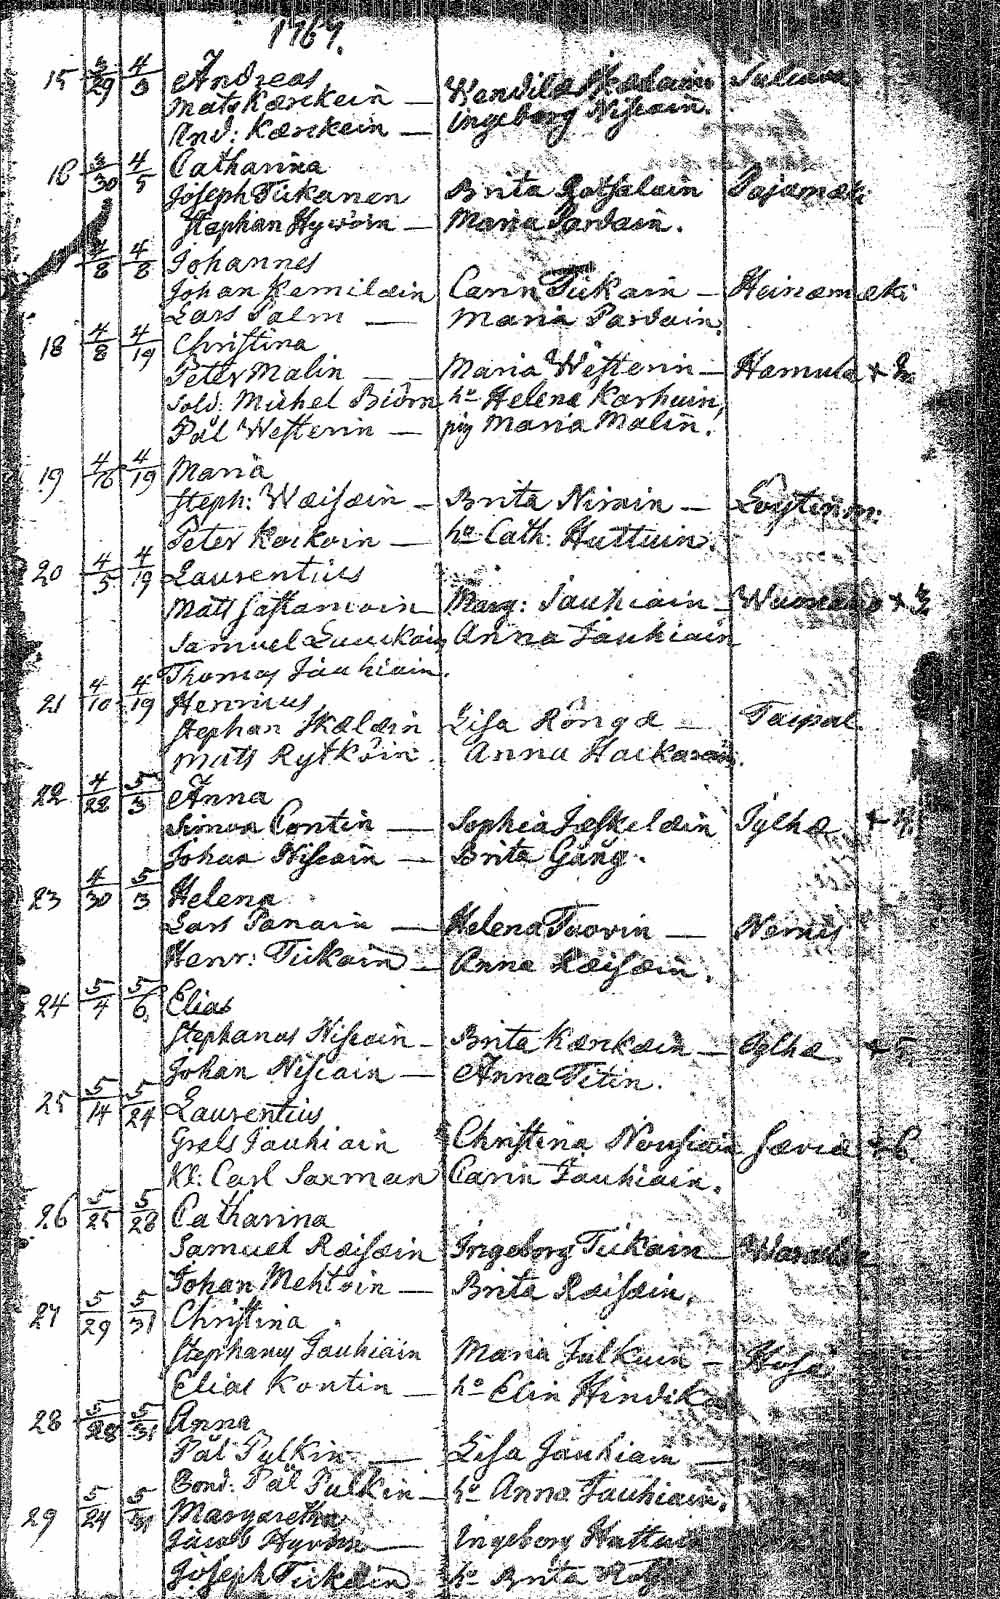 1769.
15 3/29 4/3 Andreas
Mats Kærckein — Wendila Skælain Saluva
And: Kærckein — Ingeborg Niskain.
16 3/30 4/5 Catharina
Joseph Tickanen Brita Rotsalain Pajamæki
Stephan Hyvöin — Maria Pardain.
4/8 4/8 Johannes
Johan Kemiläin Carin Tickain — Heinæmæki
Lars Palm — Maria Pardain
18 4/8 4/19 Christina
Peter Malin — Maria Westerin — Hamula +
Sold: Michel Biörn ho Helena Karhuin,
Pål Westerin — pig Maria Malin.
19 4/16 4/19 Maria
Steph: Wæisæin — Brita Niroin — Löytinm:
Peter Kockoin — ho Cath: Huttuin.
20 4/5 4/19 Laurentius
Matts Sattamoin — Marg: Jauhiain —
Samuel Luuckoin Anna Jauhiain
Thomas Jauhiain.
21 4/10 4/19 Henricus
Stephan Skælæin Lisa Röngæ — Taipal
Mats Rytköin Anna Hackarain.
22 4/28 5/3 Anna
Simon Contin — Sophia Jæskelæin Jylhæ +
Johan Niskain — Brita Gång.
23 4/30 5/3 Helena
Lars Panain — Helena Toovin — Nemis
Henr: Tickain — Anna Ræisæin.
24 5/4 5/6 Elias
Stephanus Niskain — Brita Kærckæin — Jylhæ +
Johan Niskain — Anna Titin.
25 5/14 5/24 Laurentius
Grels Jauhiain Christina Nousiain Savia +
Kl: Carl Saxman Carin Jauhiain.
26 5/25 5/28 Catharina
Samuel Ræisæin Ingeborg Tickain —
Johan Mehtöin — Brita Ræisæin.
27 5/29 5/31 Christina
Stephanus Jauhiain Maria Julkuin —
Elias Kontin — ho Elin Hindik
28 5/28 5/31 Anna
Pål Pulkin — Lisa Jauhiain —
Bond: Pål Pulkin — ho Anna Jauhiain.
29 5/24 5/31 Margaretha
Jacob Hyvöin — Ingeborg Huttuin
Joseph Tickain — ho Brita